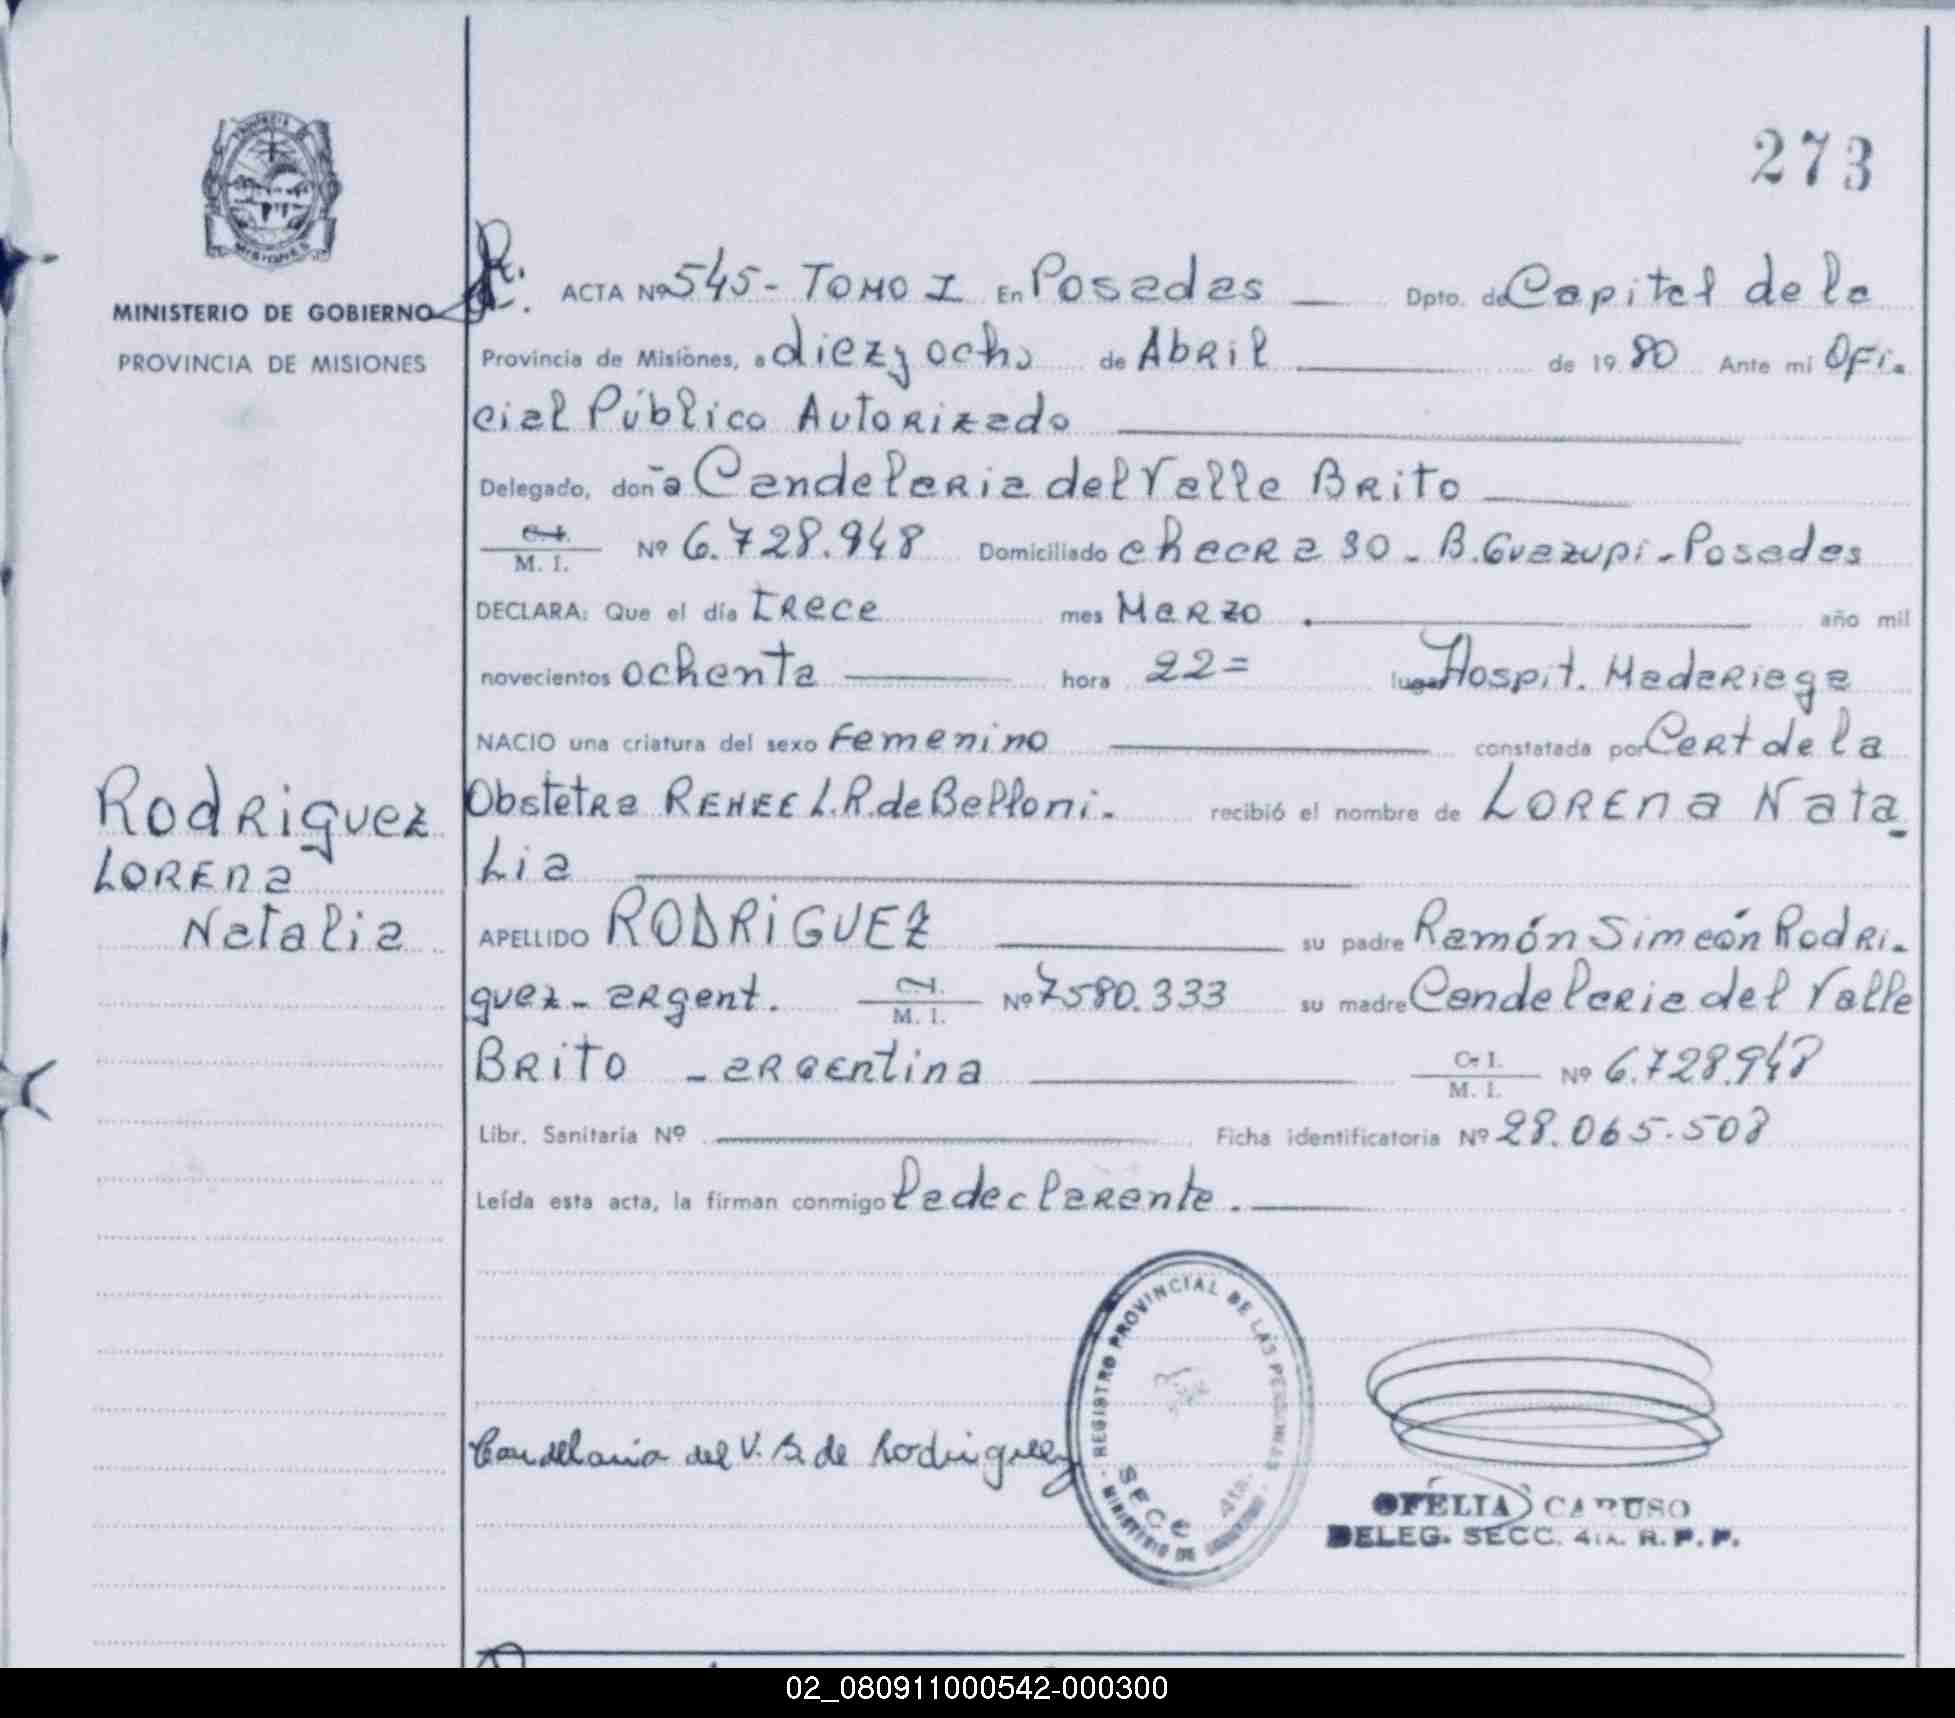 273
MINISTERIO DE GOBIERNO
PROVINCIA DE MISIONES
ACTA Nº 545- TOMO I En Posadas Dpto. de Capital de la
Provincia de Misiones, a diez y ocho de Abril de 1980 Ante mi Ofi-
cial Público Autorizado
Delegado, doña Candelaria del Valle Brito
C.I. M. I. Nº 6.728.948 Domiciliado chacra 30 - B. Guazupi - Posadas
DECLARA: Que el día trece mes Marzo año mil
novecientos ochenta hora 22= lugar Hospit. Madariaga
NACIO una criatura del sexo Femenino constatada por Cert de la
Obstetra RENEE L.R. de Belloni - recibió el nombre de LORENA Nata-
Lia
Rodriguez
LORENA
Natalia
APELLIDO RODRIGUEZ su padre Ramón Simeón Rodri-
guez - argent. M. I. Nº 7580.333 su madre Candelaria del Valle
Brito - argentina C. I. M. I. Nº 6.728.948
Libr. Sanitaria Nº Ficha identificatoria Nº 28.065.508
Leída esta acta, la firman conmigo la declarante.
Candelaria del V. B. de Rodriguez
REGISTRO PROVINCIAL DE LAS PERSONAS
SECC 4ta.
MINISTERIO DE GOBIERNO
OFELIA CARUSO
DELEG. SECC. 4ta. R. P. P.
02_080911000542-000300